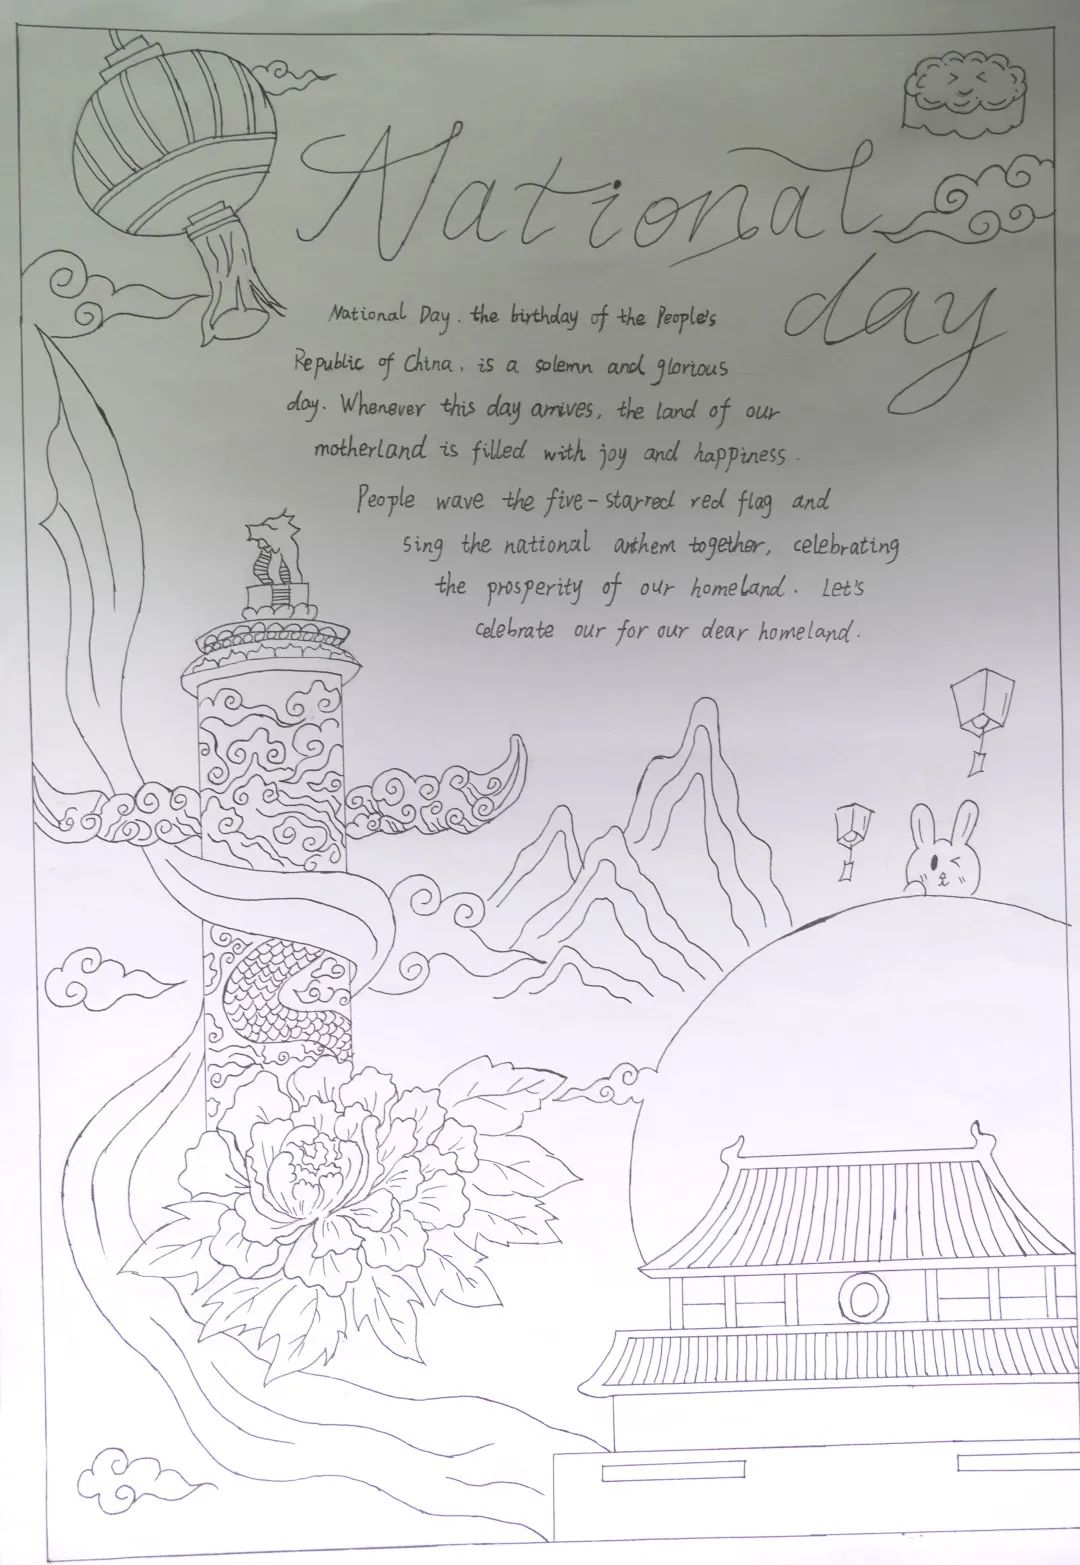 National
day
National Day. the birthday of the People's
Republic of China. is a solemn and glorious
day. Whenever this day arrives, the land of our
motherland is filled with joy and happiness.
People wave the five-starred red flag and
sing the national anthem together, celebrating
the prosperity of our homeland. Let's
celebrate our for our dear homeland.